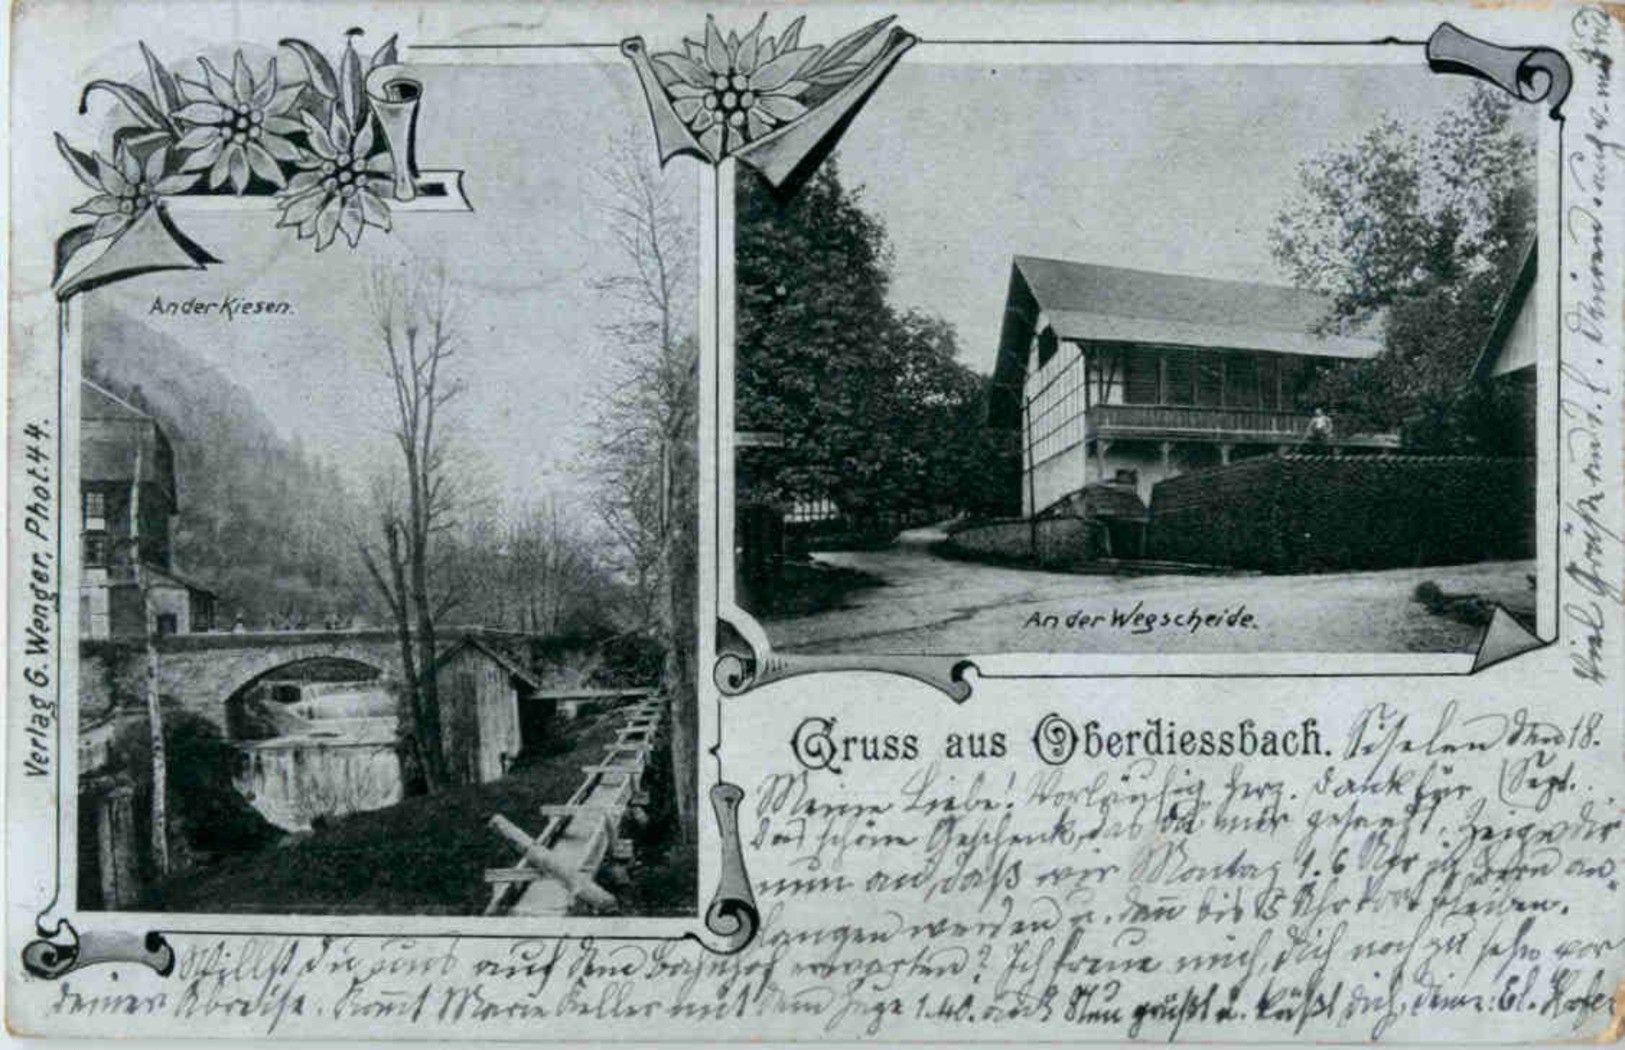 An der Kiesen.
An der Wegscheide.
Verlag G. Wenger, Phot. 44.
Gruss aus Oberdiessbach.
Siselen den 18. Sept.
Meine Liebe! Vorläufig herz. Dank für
das schöne Geschenk, das du mir gesandt. Zeige dir
nun an, daß wir Montag 1.6 Uhr in Bern an-
langen werden u. dan bis 5 Uhr dort bleiben.
Willst du uns auf dem Bahnhof erwarten? Ich freue mich, dich noch zu sehn vor
deiner Abreise. Komt Marie Keller mit dem Zuge 1.40. auch? Nun grüßt u. küßt dich, deine: El.
Viel Grüße